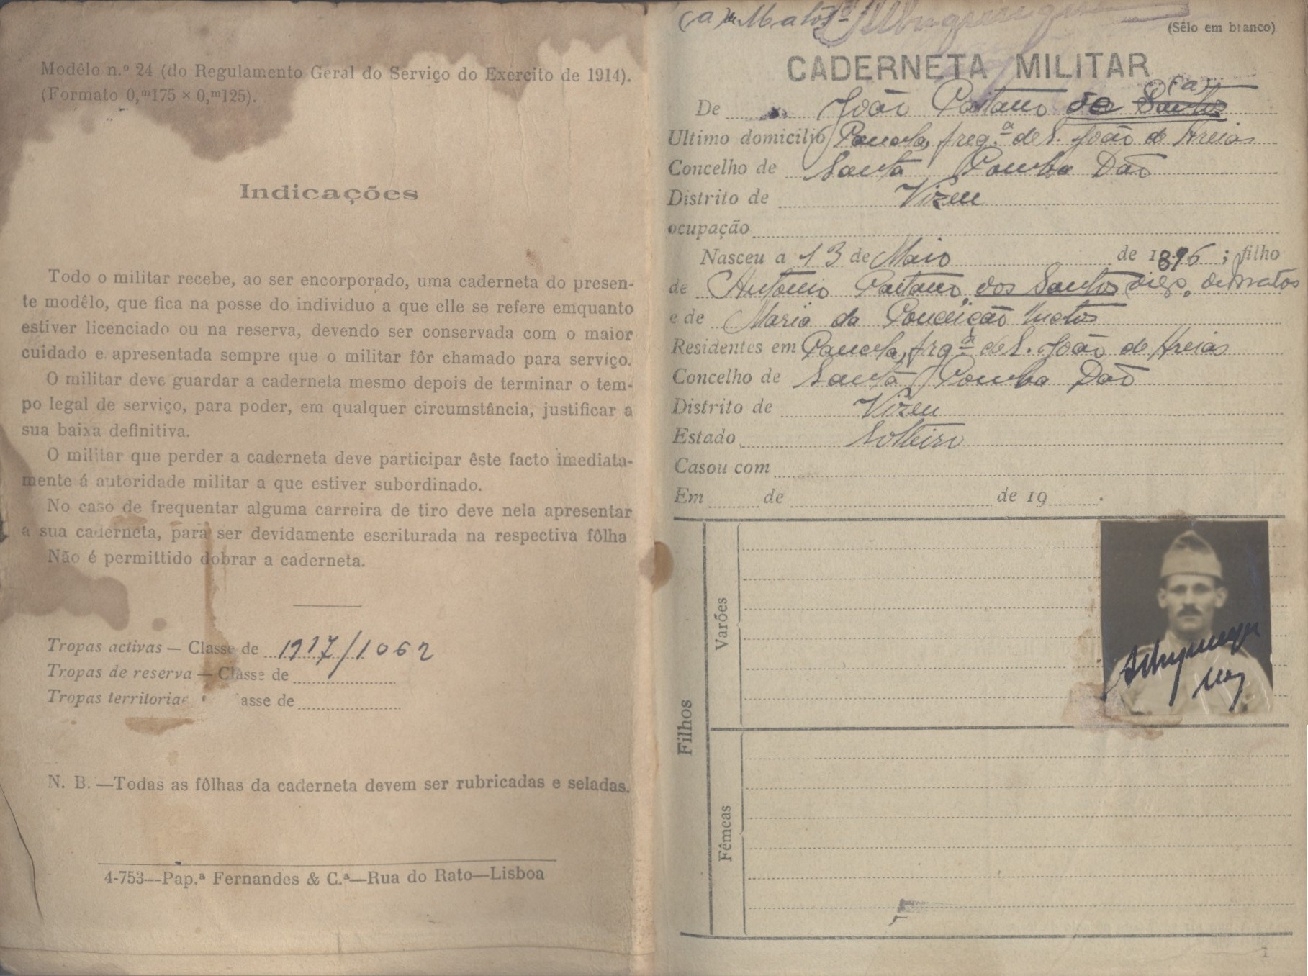 Modêlo n.º 24 (do Regulamento Geral do Serviço do Exército de 1914).
(Formato 0,ᵐ175 × 0,ᵐ125).
Indicações
Todo o militar recebe, ao ser encorporado, uma caderneta do presen-
te modêlo, que fica na posse do individuo a que elle se refere emquanto
estiver licenciado ou na reserva, devendo ser conservada com o maior
cuidado e apresentada sempre que o militar fôr chamado para serviço.
O militar deve guardar a caderneta mesmo depois de terminar o tem-
po legal de serviço, para poder, em qualquer circumstância, justificar a
sua baixa definitiva.
O militar que perder a caderneta deve participar êste facto imediata-
mente á autoridade militar a que estiver subordinado.
No caso de frequentar alguma carreira de tiro deve nela apresentar
a sua caderneta, para ser devidamente escriturada na respectiva fôlha
Não é permittido dobrar a caderneta.
Tropas activas — Classe de 1917/1062
Tropas de reserva — Classe de
Tropas territoriae asse de
N. B. —Todas as fôlhas da caderneta devem ser rubricadas e seladas.
4-753—Pap.ª Fernandes & C.ª—Rua do Rato—Lisboa
(a) Matos
(Sêlo em branco)
CADERNETA MILITAR
De João Caetano de Santos (a)
Ultimo domicilio freg.ª de S. João de Areias
Concelho de Santa Comba Dão
Distrito de Vizeu
ocupação
Nasceu a 13 de Maio de 1896; filho
de António Caetano dos Santos digo, de Matos
e de Maria da Conceição Matos
Residentes em freg.ª de S. João de Areias
Concelho de Santa Comba Dão
Distrito de Vizeu
Estado Solteiro
Casou com
Em de de 19 .
Filhos
Varões
Fêmeas
1